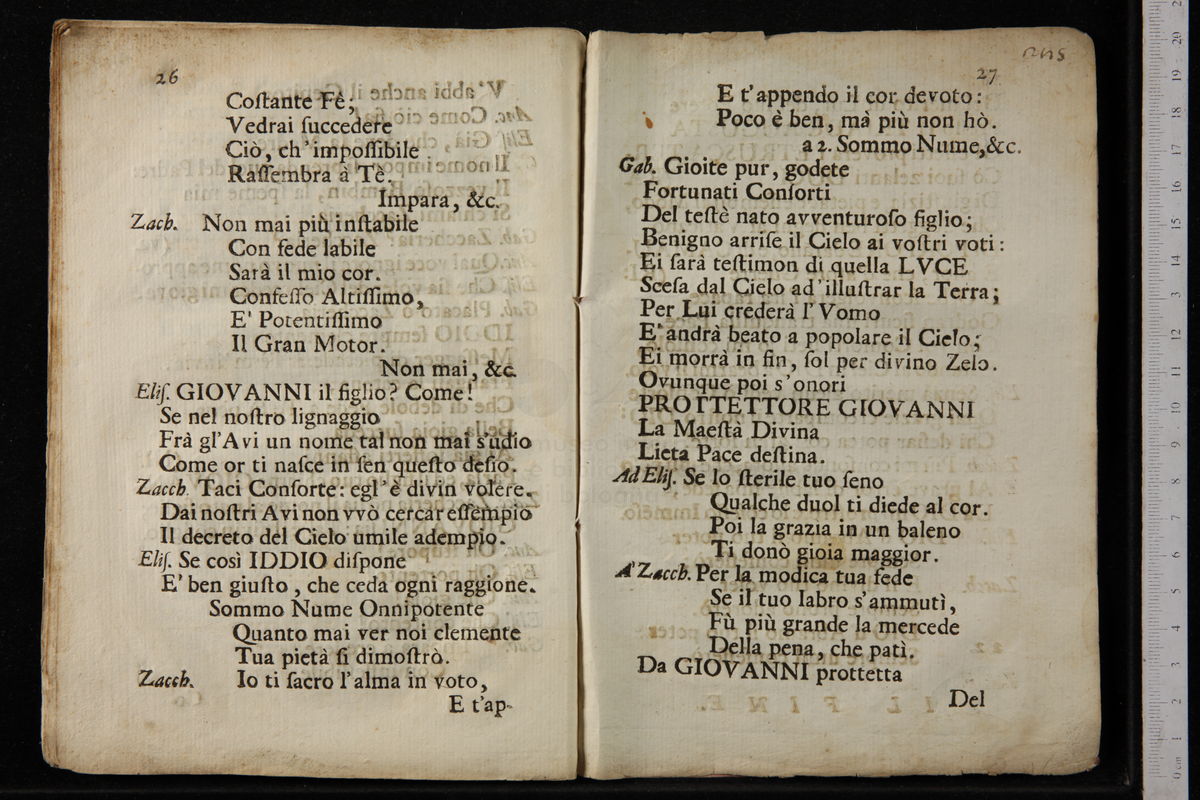 26
Coſtante Fê;
Vedrai ſuccedere
Ciò, ch'impoſſibile
Raſſembra à Tè.
Impara, &c.
Zach. Non mai più inſtabile
Con fede labile
Sarà il mio cor.
Confeſſo Altiſſimo,
E' Potentiſſimo
Il Gran Motor.
Non mai, &c.
Eliſ. GIOVANNI il figlio? Come!
Se nel noſtro lignaggio
Frà gl'Avi un nome tal non mai s'udìo
Come or ti naſce in ſen queſto deſio.
Zacch. Taci Conſorte: egl'è divin volere.
Dai noſtri Avi non vvò cercar eſſempio
Il decreto del Cielo umile adempio.
Eliſ. Se così IDDIO diſpone
E' ben giuſto, che ceda ogni raggione.
Sommo Nume Onnipotente
Quanto mai ver noi clemente
Tua pietà ſi dimoſtrò.
Zacch. Io ti ſacro l'alma in voto,
E t'ap-
27
E t'appendo il cor devoto:
Poco è ben, mà più non hò.
a 2. Sommo Nume, &c.
Gab. Gioite pur, godete
Fortunati Conſorti
Del teſtè nato avventuroſo figlio;
Benigno arriſe il Cielo ai voſtri voti:
Ei ſarà teſtimon di quella LVCE
Sceſa dal Cielo ad'illuſtrar la Terra;
Per Lui crederà l'Vomo
E' andrà beato a popolare il Cielo;
Ei morrà in fin, ſol per divino Zelo.
Ovunque poi s'onori
PROTTETTORE GIOVANNI
La Maeſtà Divina
Lieta Pace deſtina.
Ad Eliſ. Se lo ſterile tuo ſeno
Qualche duol ti diede al cor.
Poi la grazia in un baleno
Ti donò gioia maggior.
A' Zacch. Per la modica tua fede
Se il tuo labro s'ammutì,
Fù più grande la mercede
Della pena, che patì.
Da GIOVANNI prottetta
Del